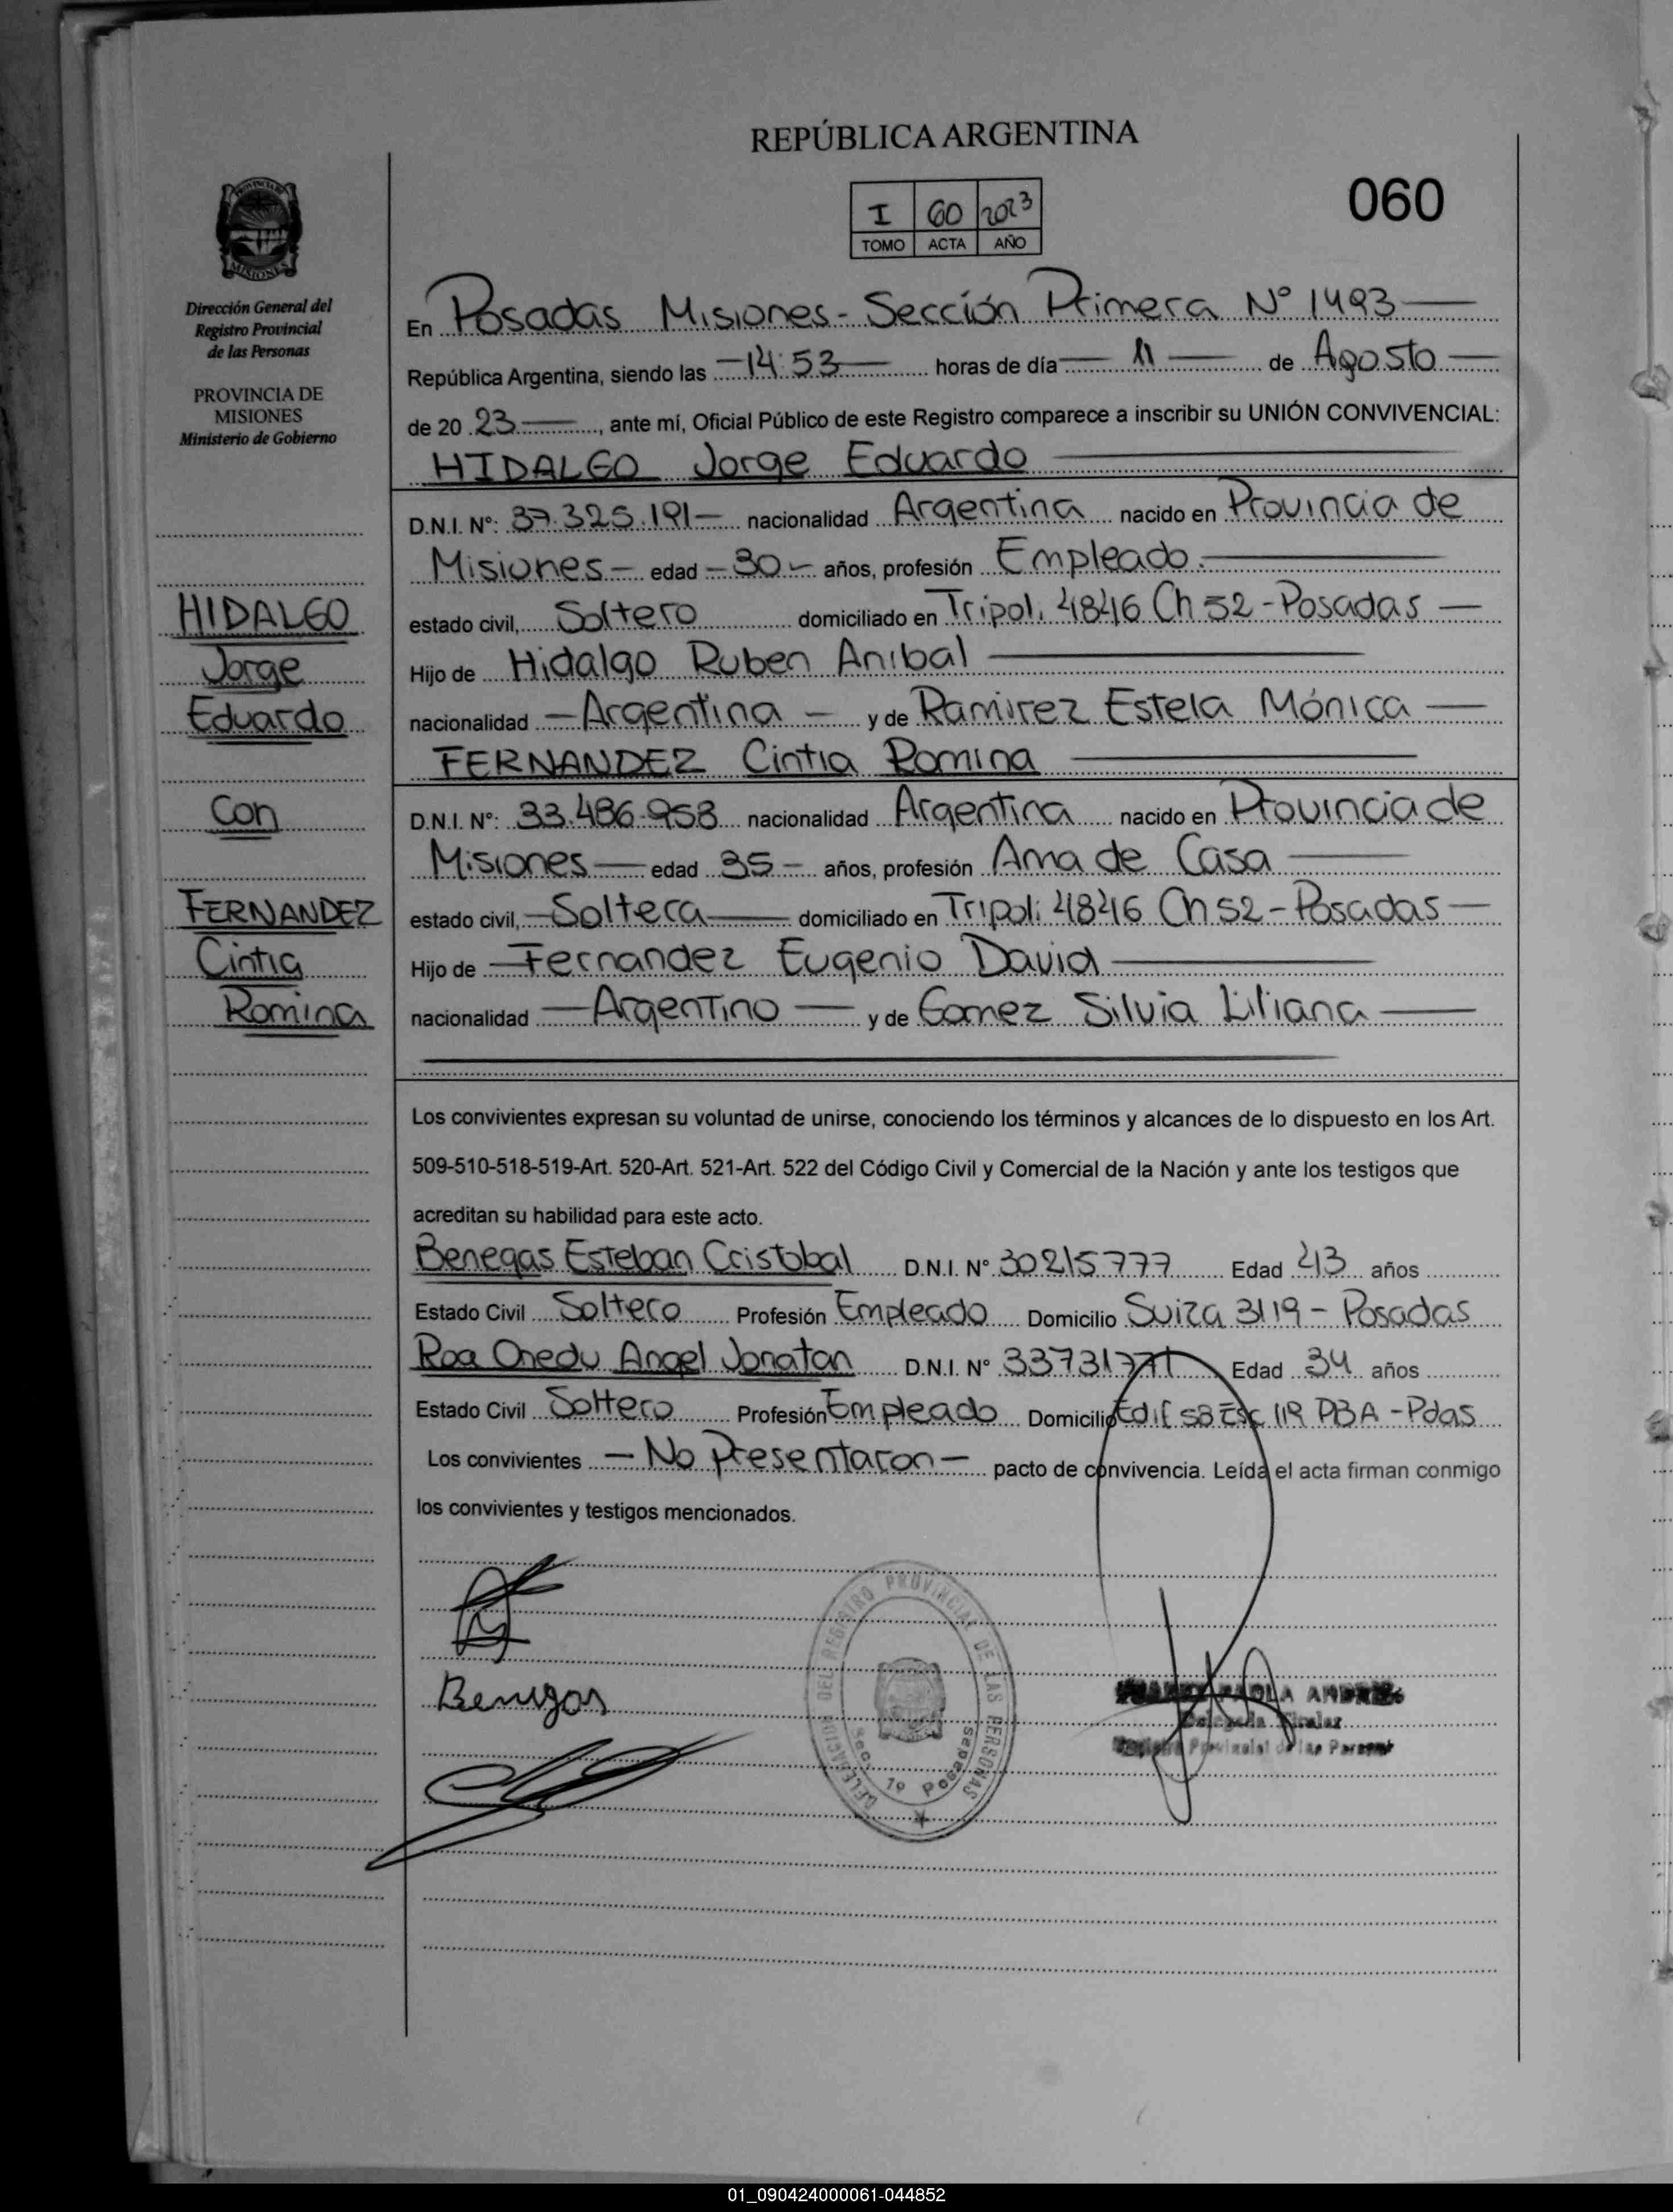 REPÚBLICA ARGENTINA
I 60 2023
TOMO ACTA AÑO
060
PROVINCIA DE
MISIONES
Dirección General del
Registro Provincial
de las Personas
PROVINCIA DE
MISIONES
Ministerio de Gobierno
En Posadas Misiones - Sección Primera N° 1493
República Argentina, siendo las 14:53 horas de día 11 de Agosto
de 20 23, ante mí, Oficial Público de este Registro comparece a inscribir su UNIÓN CONVIVENCIAL:
HIDALGO Jorge Eduardo
D.N.I. Nº: 37.325.191 nacionalidad Argentina nacido en Provincia de
Misiones edad 30 años, profesión Empleado.
estado civil, Soltero domiciliado en Tripoli 4846 Ch 52 - Posadas
Hijo de Hidalgo Ruben Anibal
nacionalidad Argentina y de Ramirez Estela Mónica
FERNANDEZ Cintia Romina
D.N.I. Nº: 33.486.958 nacionalidad Argentina nacido en Provincia de
Misiones edad 35 años, profesión Ama de Casa
estado civil, Soltera domiciliado en Tripoli 4846 Ch 52 - Posadas
Hijo de Fernandez Eugenio David
nacionalidad Argentino y de Gomez Silvia Liliana
HIDALGO
Jorge
Eduardo
Con
FERNANDEZ
Cintia
Romina
Los convivientes expresan su voluntad de unirse, conociendo los términos y alcances de lo dispuesto en los Art.
509-510-518-519-Art. 520-Art. 521-Art. 522 del Código Civil y Comercial de la Nación y ante los testigos que
acreditan su habilidad para este acto.
Benegas Esteban Cristobal D.N.I. Nº 30215777 Edad 43 años
Estado Civil Soltero Profesión Empleado Domicilio Suiza 3119 - Posadas
Roa Onedu Angel Jonatan D.N.I. Nº 33731771 Edad 34 años
Estado Civil Soltero Profesión Empleado Domicilio Edif 58 Esc 119 PBA - Pdas
Los convivientes - No Presentaron - pacto de convivencia. Leída el acta firman conmigo
los convivientes y testigos mencionados.
Benegas
DELEGACION DEL REGISTRO PROVINCIAL DE LAS PERSONAS
Sec. 1º Posadas
PAOLA ANDREA
Delegada Titular
Registro Provincial de las Personas
01_090424000061-044852